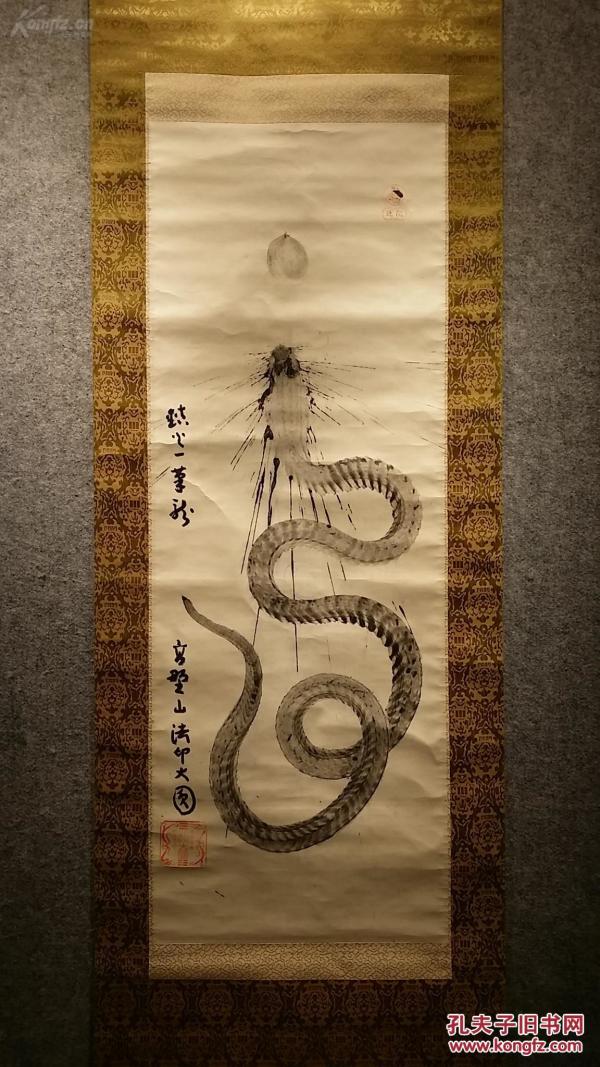 Kongfz.cn
鎮火一筆龍
高野山法印大圓
孔夫子旧书网
www.kongfz.com